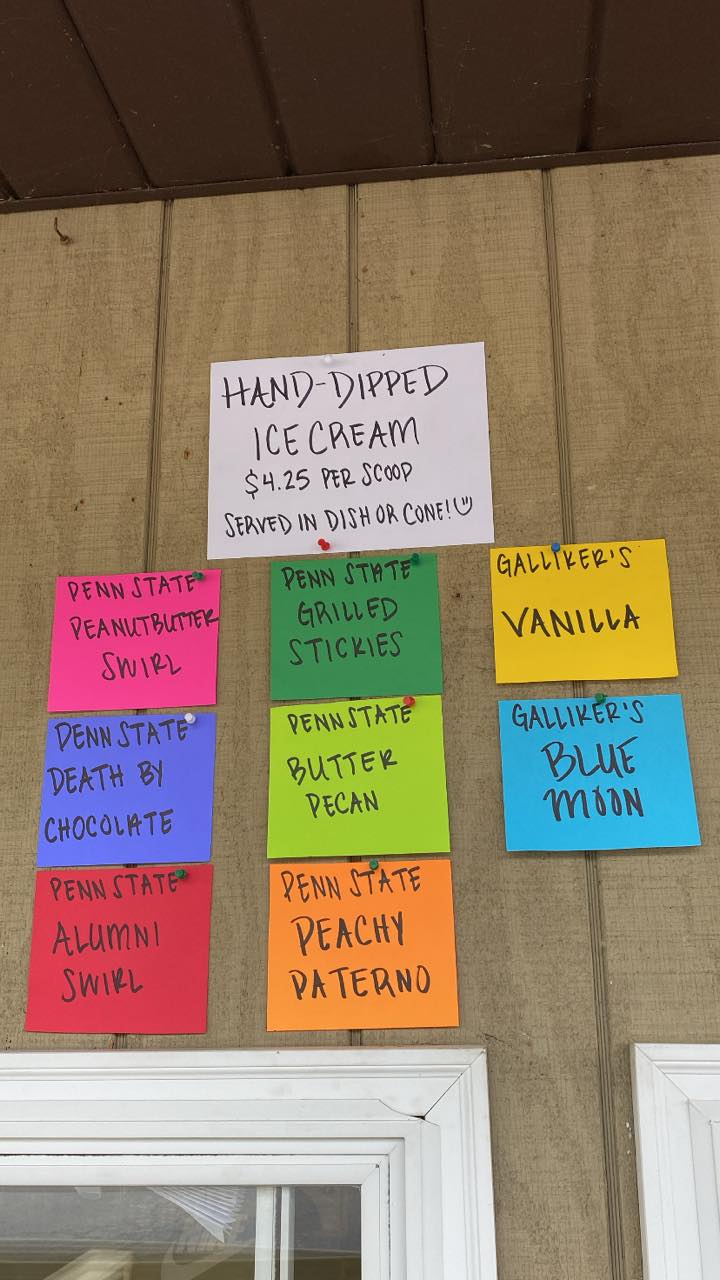 HAND-DIPPED
ICE CREAM
$4.25 PER SCOOP
SERVED IN DISH OR CONE!
PENN STATE
PEANUTBUTTER
SWIRL
PENN STATE
GRILLED
STICKIES
GALLIKER'S
VANILLA
PENN STATE
DEATH BY
CHOCOLATE
PENN STATE
BUTTER
PECAN
GALLIKER'S
BLUE
MOON
PENN STATE
ALUMNI
SWIRL
PENN STATE
PEACHY
PATERNO